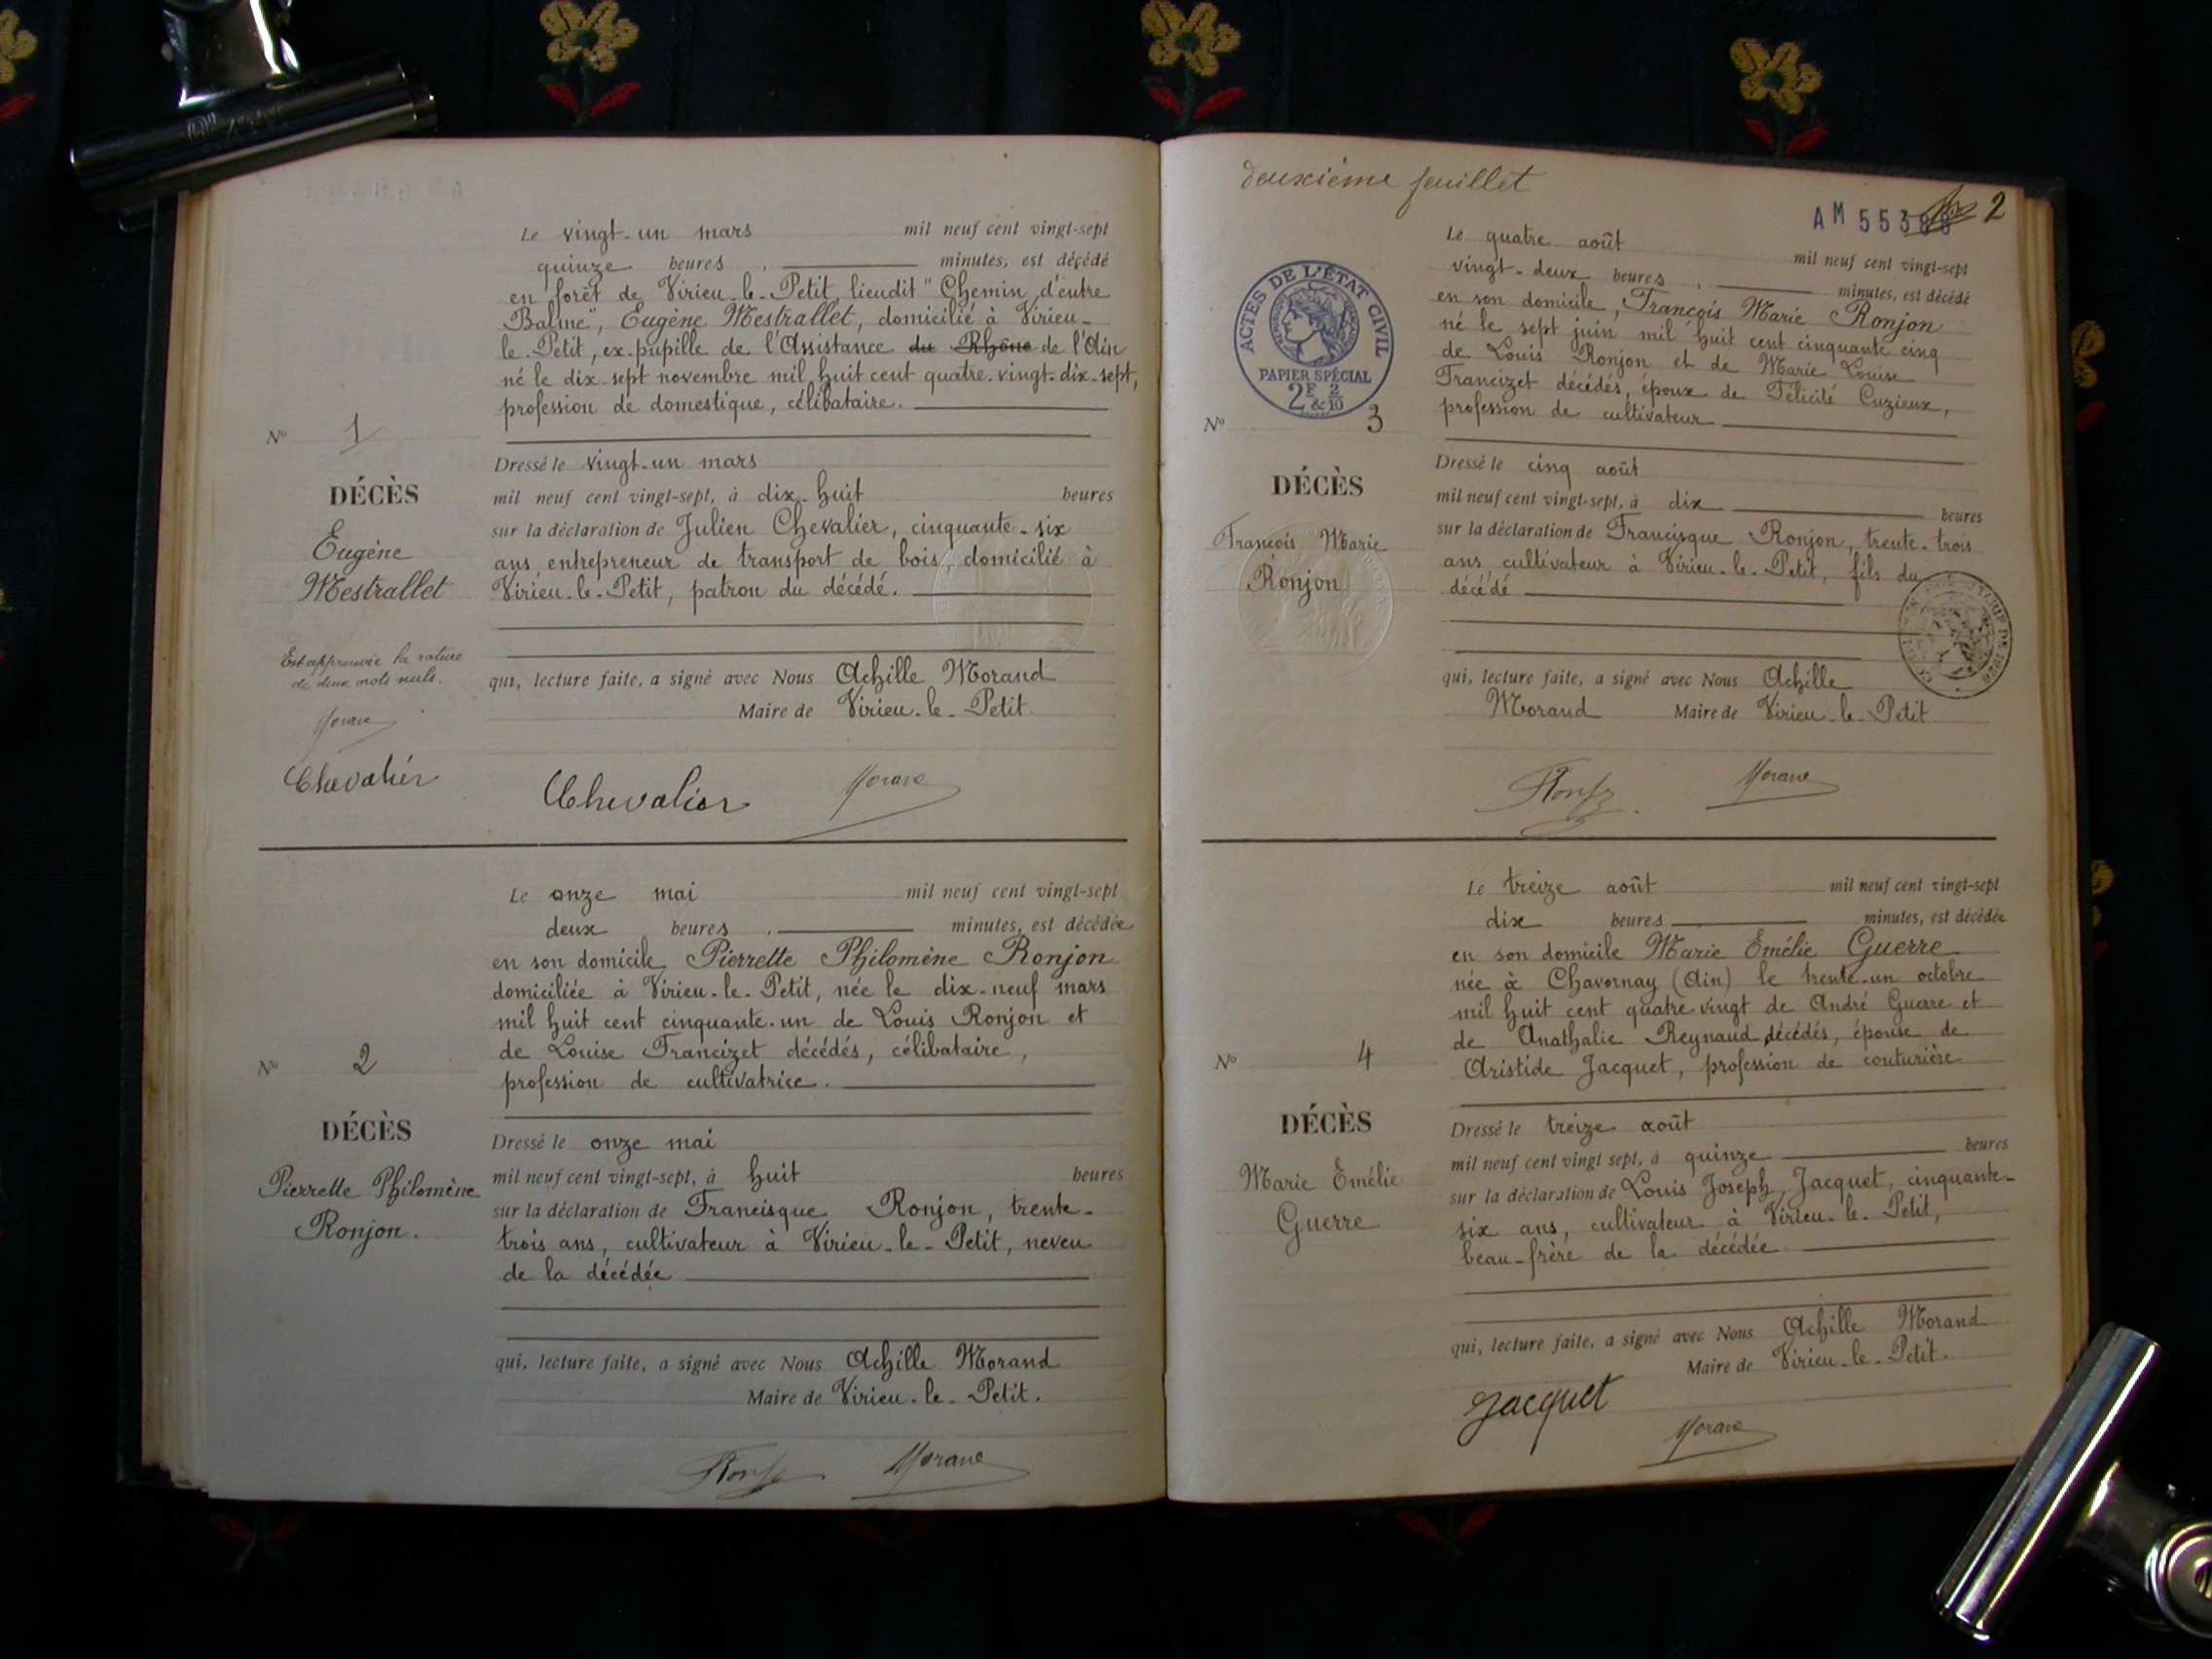 Le vingt-un mars mil neuf cent vingt-sept
quinze heures, minutes, est décédé
en forêt de Virieu-le-Petit, lieudit "Chemin d'entre
Balme", Eugène Mestrallet, domicilié à Virieu-
le-Petit, ex-pupille de l'Assistance du Rhône de l'Ain
né le dix-sept novembre mil huit cent quatre-vingt-dix-sept,
profession de domestique, célibataire.
N° 1
DÉCÈS
Eugène
Mestrallet
Est approuvée la rature
de deux mots nuls.
Morand
Chevalier
Dressé le vingt-un mars
mil neuf cent vingt-sept, à dix-huit heures
sur la déclaration de Julien Chevalier, cinquante-six
ans, entrepreneur de transport de bois, domicilié à
Virieu-le-Petit, patron du décédé.
qui, lecture faite, a signé avec Nous Achille Morand
Maire de Virieu-le-Petit.
Chevalier Morand
Le onze mai mil neuf cent vingt-sept
deux heures, minutes, est décédée
en son domicile Pierrette Philomène Ronjon
domiciliée à Virieu-le-Petit, née le dix-neuf mars
mil huit cent cinquante-un de Louis Ronjon et
de Louise Francizet décédés, célibataire,
profession de cultivatrice.
N° 2
DÉCÈS
Pierrette Philomène
Ronjon.
Dressé le onze mai
mil neuf cent vingt-sept, à huit heures
sur la déclaration de Francisque Ronjon, trente-
trois ans, cultivateur à Virieu-le-Petit, neveu
de la décédée
qui, lecture faite, a signé avec Nous Achille Morand
Maire de Virieu-le-Petit.
Morand
deuxième feuillet
2
ACTES DE L'ÉTAT CIVIL
PAPIER SPÉCIAL
2F & 2/10
Le quatre août mil neuf cent vingt-sept
vingt-deux heures, minutes, est décédé
en son domicile, François Marie Ronjon
né le sept juin mil huit cent cinquante cinq
de Louis Ronjon et de Marie Louise
Francizet décédés, époux de Félicité Cuzieux,
profession de cultivateur
N° 3
DÉCÈS
François Marie
Ronjon
Dressé le cinq août
mil neuf cent vingt-sept, à dix heures
sur la déclaration de Francisque Ronjon, trente-trois
ans, cultivateur à Virieu-le-Petit, fils du
décédé
qui, lecture faite, a signé avec Nous Achille
Morand Maire de Virieu-le-Petit
Morand
Le treize août mil neuf cent vingt-sept
dix heures minutes, est décédée
en son domicile Marie Emélie Guerre
née à Chavornay (Ain) le trente-un octobre
mil huit cent quatre vingt de André Guerre et
de Anathalie Reynaud décédés, épouse de
Aristide Jacquet, profession de couturière
N° 4
DÉCÈS
Marie Emélie
Guerre
Dressé le treize août
mil neuf cent vingt sept, à quinze heures
sur la déclaration de Louis Joseph Jacquet, cinquante-
six ans, cultivateur à Virieu-le-Petit,
beau-frère de la décédée
qui, lecture faite, a signé avec Nous Achille Morand
Maire de Virieu-le-Petit.
Jacquet
Morand